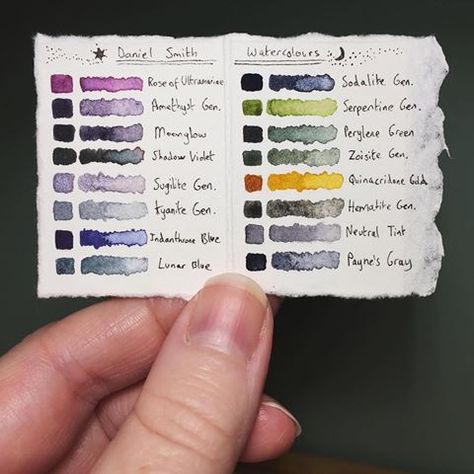 Daniel Smith
Rose of Ultramarine
Amethyst Gen.
Moonglow
Shadow Violet
Sugilite Gen.
Kyanite Gen.
Indanthrone Blue
Lunar Blue
Watercolours
Sodalite Gen.
Serpentine Gen.
Perylene Green
Zoisite Gen.
Quinacridone Gold
Hematite Gen.
Neutral Tint
Payne's Gray